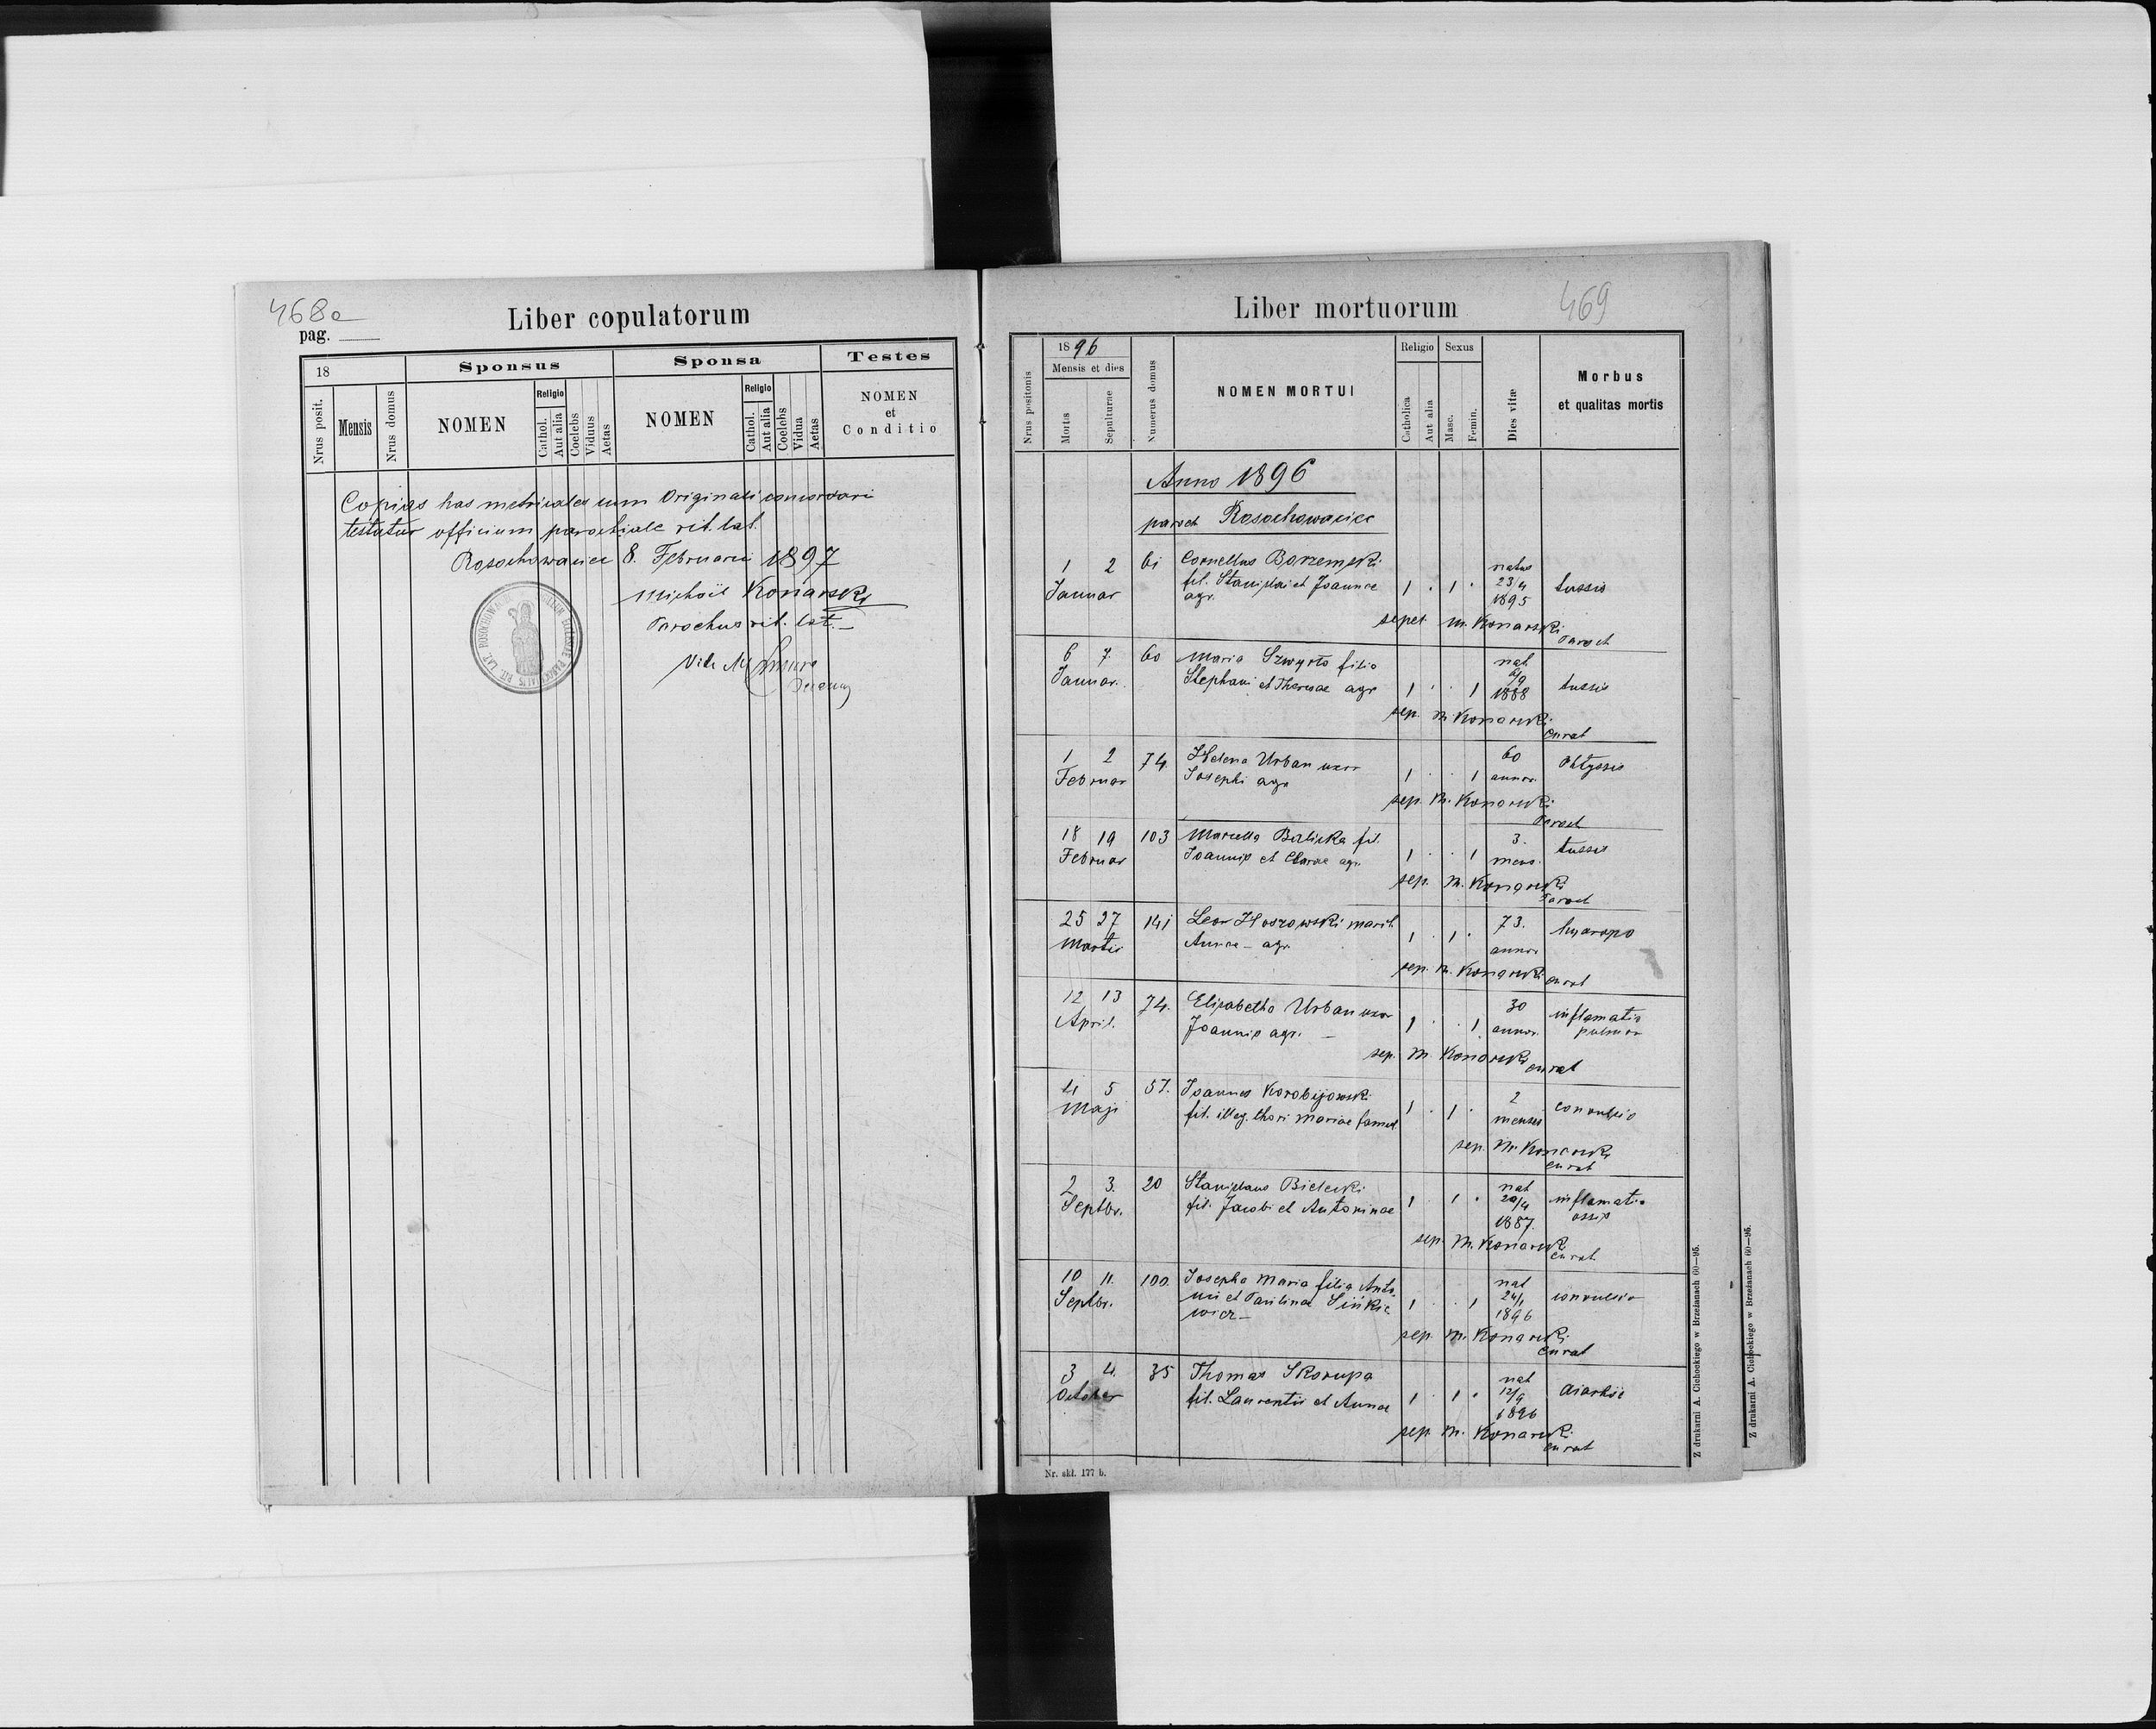 468a
pag.
Liber copulatorum
18
Sponsus
Sponsa
Testes
Nrus posit.
Mensis
Nrus domus
NOMEN
Religio
Cathol.
Aut alia
Coelebs
Viduus
Aetas
NOMEN
Religio
Cathol.
Aut alia
Coelebs
Vidua
Aetas
NOMEN
et
Conditio
Copias has metricales cum Originali concordari
testatur officium parochiale rit. lat.
Rosochowaciec 8. Februarii 1897
Michaël Konarski
Parochus rit. lat.
469
Liber mortuorum
Nrus positonis
1896
Mensis et dies
Mortis
Sepulturae
Numerus domus
NOMEN MORTUI
Religio
Catholica
Aut alia
Sexus
Masc.
Femin.
Dies vitæ
Morbus
et qualitas mortis
Anno 1896
paroch Rosochowaciec
1 2 61 Cornelius Borzemski natus
Januar fil. Stanislai et Joannae 1 . 1 . 23/4 tussis
agr. 1895
sepel. M. Konarski
Paroch
6 7. 60 Maria Szwyrło filia nat
Januar. Stephani et Theresae agr 1 . . 1 1888 tussis
sep. M. Konarski
Curat
1 2 74. Helena Urban uxor 60
Februar Josephi agr 1 . . 1 annor. Phtysis
sep. M. Konarski
Paroch
18 19 103 Marcella Balicka fil. 3.
Februar Joannis et Clarae agr. 1 . . 1 mens. tussis
sep. M. Konarski
Paroch
25 27 141 Leon Hoszowski marit. 73.
Martis Annae - agr. 1 . 1 . annor hydrops
sep. M. Konarski curat
12 13 74. Elisabetha Urban uxor 30 inflamatio
April. Joannis agr. – 1 . . 1 annor. pulmon
sep. M. Konarski curat
4 5 57. Joannes Korobijowski 2
Maji fil. illeg. thori Mariae famul. 1 . 1 . menses convulsio
sep. M. Konarski
curat
2 3. 20 Stanislaus Bielecki nat
Septbr. fil. Jacobi et Antoninae 1 1 . 20/4 inflamatio
1887. ossis
sep. M. Konarski
curat
10 11. 100. Josepha Maria filia Anto- nat
Septbr. nii et Paulinae Sińkie 1 . . 1 24/1 convulsio
wicz – 1896
sep. M. Konarski
Curat
3 4. 35 Thomas Skorupa nat
October fil. Laurentii et Annae 1 . 1 . 12/9
1896
sep. M. Konarski
curat
Nr. skł. 177 b.
Z drukarni A. Cichockiego w Brzeżanach 60—95.
Z drukarni A. Cichockiego w Brzeżanach 60—95.